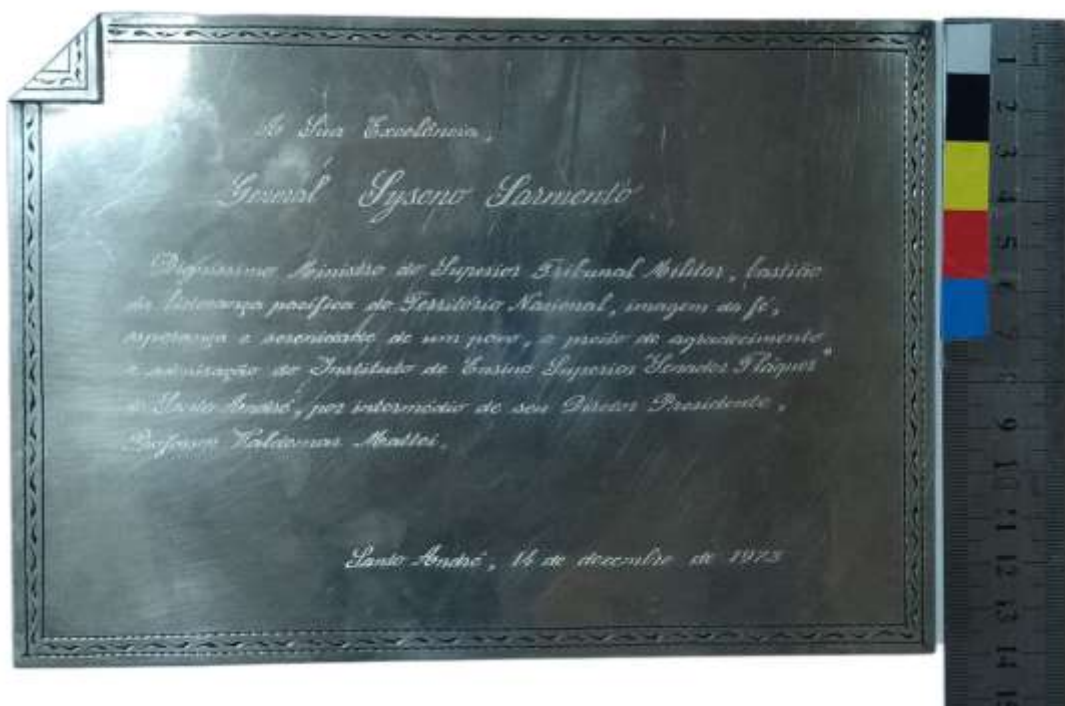 A Sua Excelência,
General Syseno Sarmento
Digníssimo Ministro do Superior Tribunal Militar, bastião
da liderança pacífica do Território Nacional, imagem da fé,
esperança e serenidade de um povo, o preito de agradecimento
e admiração do Instituto de Ensino Superior Senador Fláquer"
de Santo André, por intermédio de seu Diretor Presidente,
Professor Valdemar Mattei.
Santo André, 14 de dezembro de 1973
1
2
3
4
5
6
7
8
9
10
11
12
13
14
15